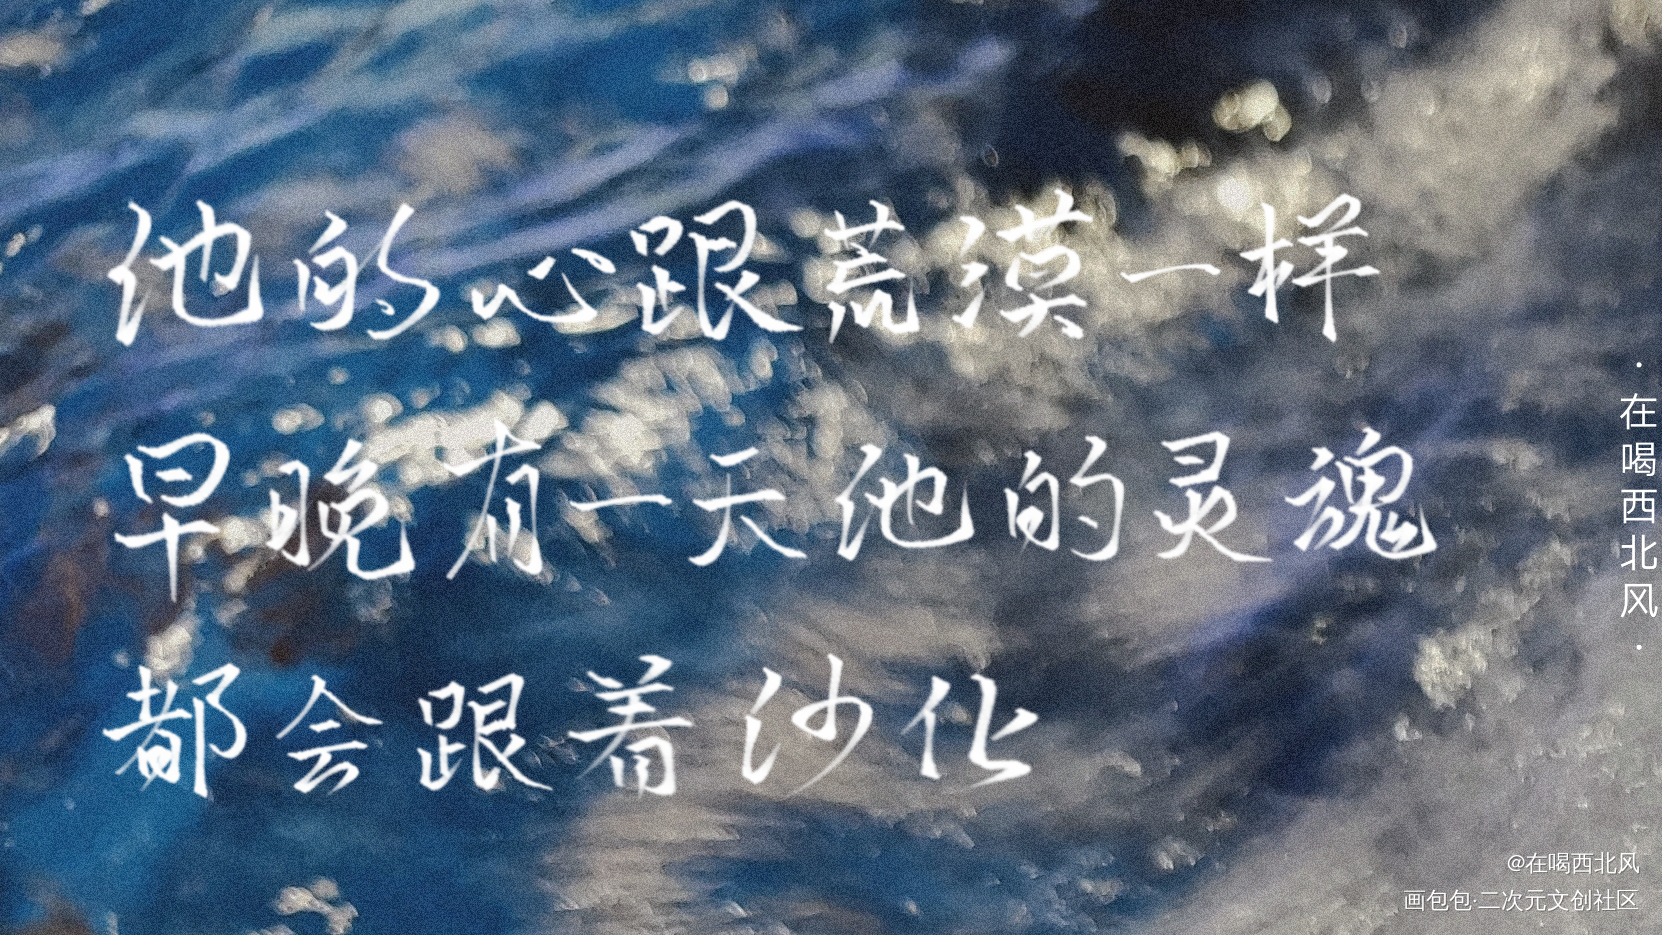 他的心跟荒漠一样
早晚有一天他的灵魂
都会跟着沙化
·在喝西北风·
@在喝西北风
画包包·二次元文创社区